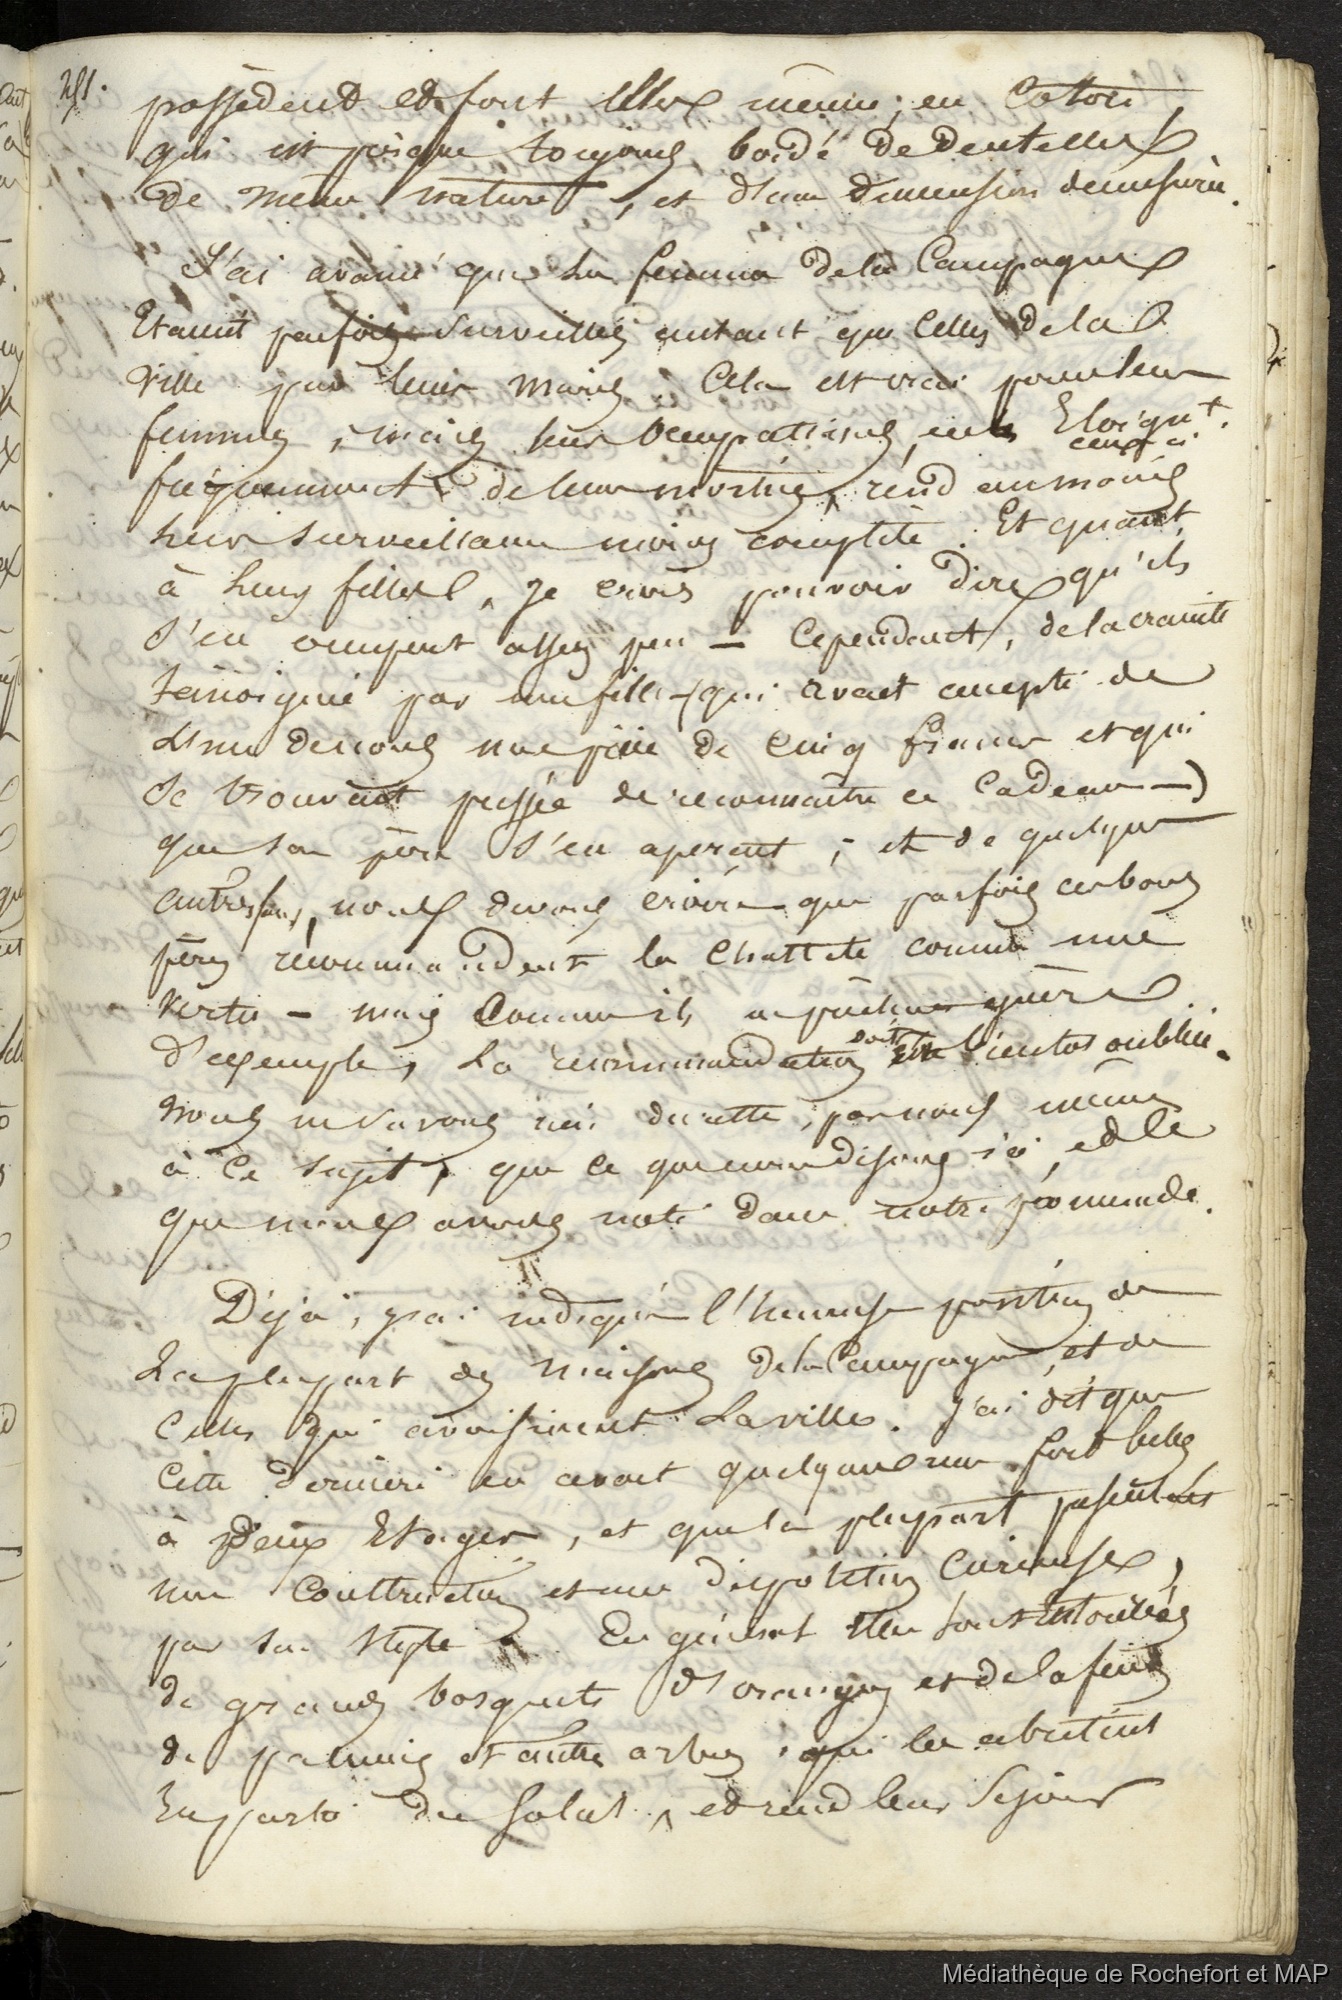 251.
possèdent et font elles mêmes, en Coton
qui est presque toujours bordé de Dentelles
de même nature, et d'une dimension demesurée.
J'ai avancé que les femmes de la Campagne
Etaient parfois surveillées autant que Celles de la
Ville par leurs Maris. Cela est vrai pour leurs
femmes, mais leurs Occupations, en les Eloignt.
fréquemment de leurs moitiés, ceux ci rend au moins
leur surveillance moins complète. Et quant
à leurs filles, je crois pouvoir dire qu'ils
s'en occupent assez peu — Cependant, de la crainte
témoignée par une fille (qui avait accepté de
l'un de nous une pièce de Cinq francs et qui
se trouvait pressée de reconnaître ce Cadeau —)
que son père s'en aperçut ; et de quelques
autres, nous devons croire que parfois ces bons
pères recommandent la Chasteté comme une
Vertu — mais Comme ils ne prêchent guère
d'exemple, la recommandation doit être bientot oubliée.
Nous ne savons rien de cette, par nous mêmes
à Ce sujet, que ce que nous disons ici, et Ce
que nous avons noté dans notre promenade.
Déjà, j'ai indiqué l'heureuse position de
La plupart des Maisons de la Campagne, et de
Celles qui avoisinent La ville. J'ai dit que
Cette dernière en avait quelques unes fort belles
à Deux Etages, et que la plupart présentaient
une Construction et une disposition Curieuses,
par son style. En général Elles sont Entourées
de grands bosquets d'orangers et de
de palmiers et autres arbres, qui les abritent
En partie du Soleil, et rend leur Séjour
Médiathèque de Rochefort et MAP